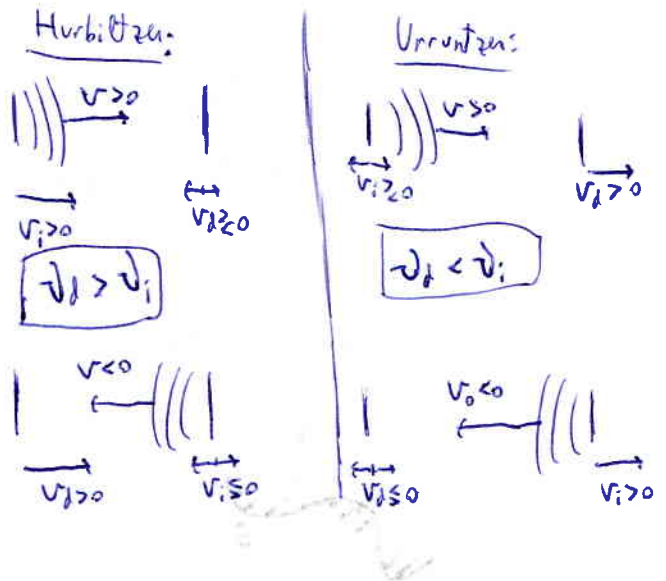 Hurbiltzen:
v>0
v_i>0
v_d≷0
ν_d > ν_i
v<0
v_d>0
v_i≶0
Urruntzen:
v>0
v_i≷0
v_d>0
ν_d < ν_i
v_o<0
v_d≶0
v_i>0